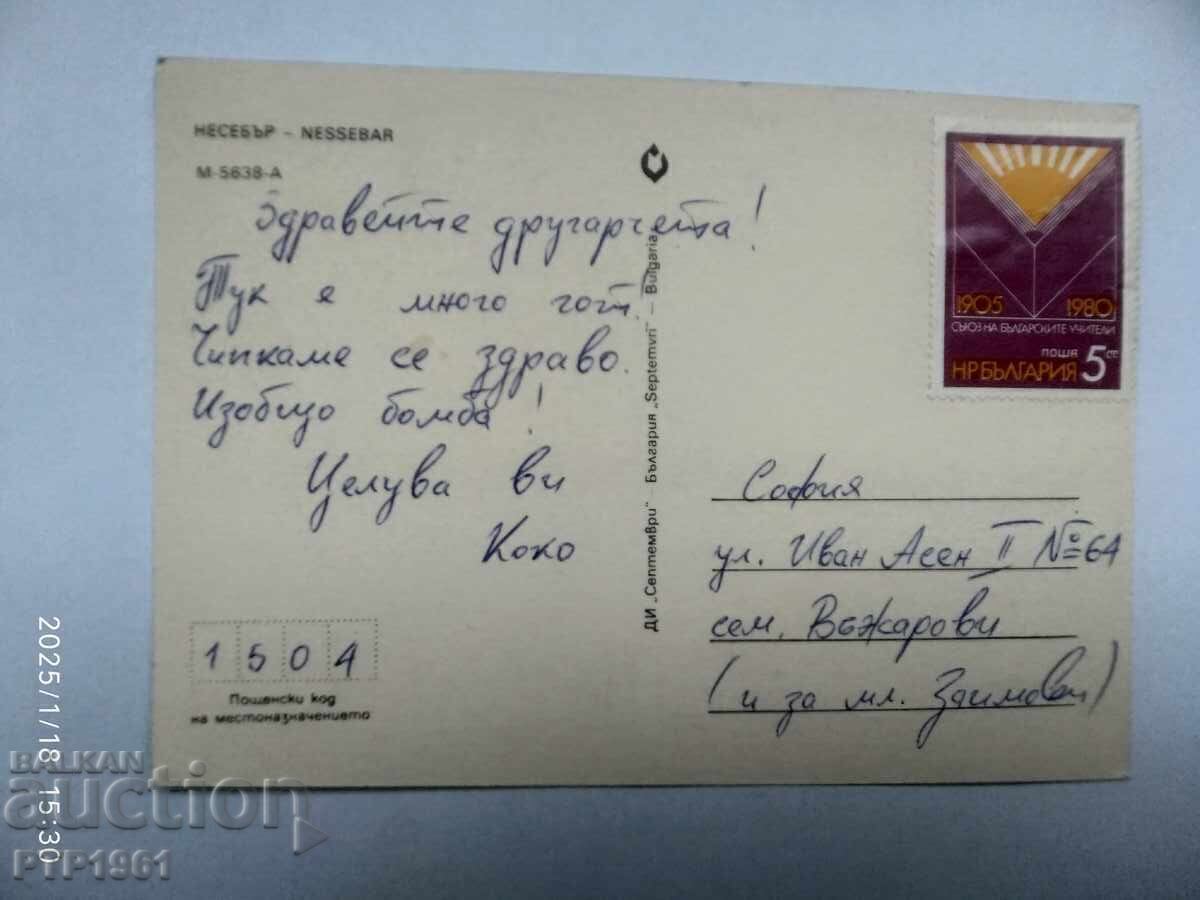 НЕСЕБЪР - NESSEBAR
М-5638-А
Здравейте другарчета!
Тук е много гот!
Чипкаме се здраво.
Изобщо бомба!
Целува ви
Коко
1504
Пощенски код
на местоназначението
ДИ „Септември" - България „Septemvri" - Bulgaria
1905 1980
СЪЮЗ НА БЪЛГАРСКИТЕ УЧИТЕЛИ
ПОЩА
НР БЪЛГАРИЯ 5 ст
София
ул. Иван Асен II № 64
сем. Въжарови
(и за мл.
2025/1/18 15:30
BALKAN
auction
PTP1961